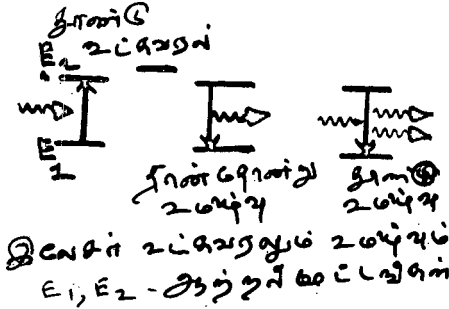 தூண்டு
E₂ உட்கவரல்
E₁
தான்தோன்று
உமிழ்வு
தூண்டு
உமிழ்வு
லேசர் உட்கவரலும் உமிழ்வும்
E₁, E₂ - ஆற்றல் மட்டங்கள்